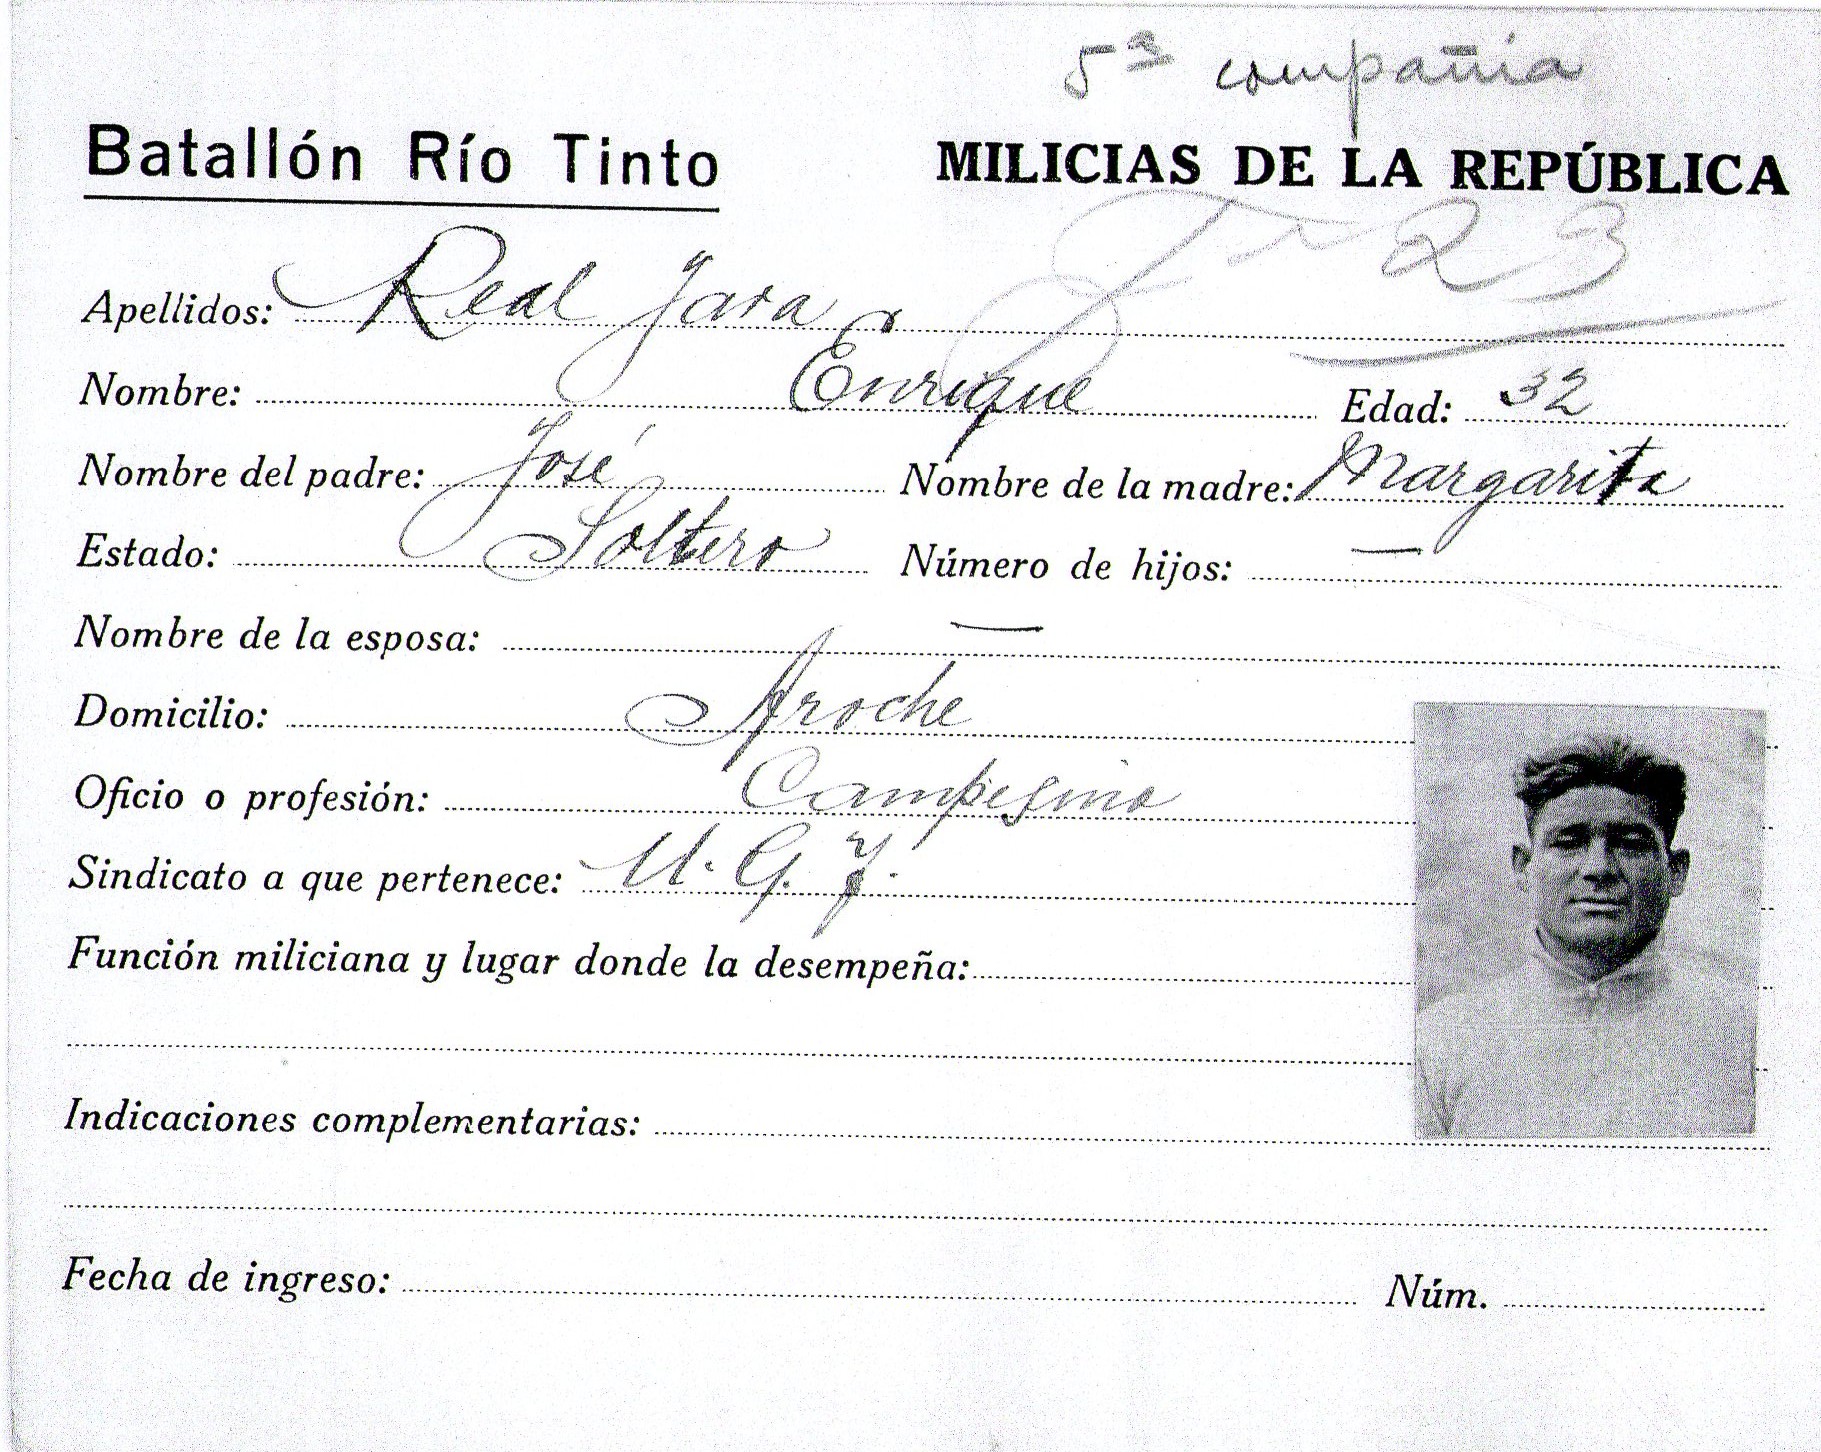 5ª compañia
Batallón Río Tinto MILICIAS DE LA REPÚBLICA
23
Apellidos: Real Jara
Nombre: Enrique Edad: 32
Nombre del padre: José Nombre de la madre: Margarita
Estado: Soltero Número de hijos: —
Nombre de la esposa: —
Domicilio: Aroche
Oficio o profesión: Campesino
Sindicato a que pertenece: U. G. T.
Función miliciana y lugar donde la desempeña:
Indicaciones complementarias:
Fecha de ingreso: Núm.